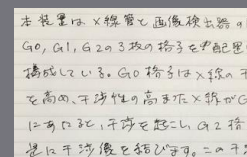 本装置はX線管と画像検出器の
G0, G1, G2の3枚の格子を配置
構成している。G0格子はX線の干
を高め、干渉性の高まったX線がG
にあたると、干渉を起こし、G2格
置に干渉像を結びます。この干